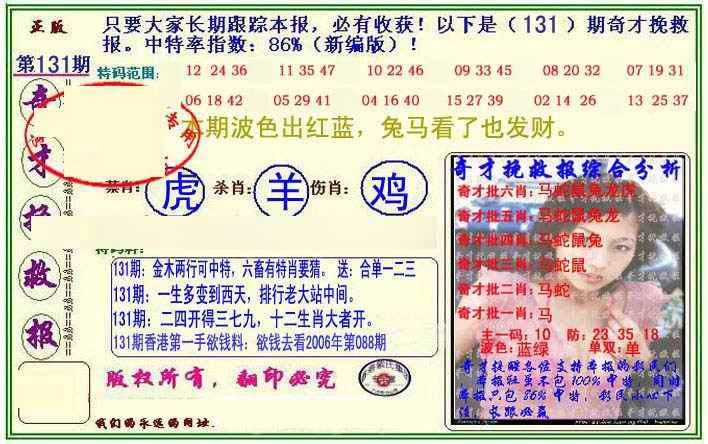 正版
只要大家长期跟踪本报，必有收获！以下是（131）期奇才挽救
报。中特率指数：86%（新编版）！
第131期
特码范围：
12 24 36 11 35 47 10 22 46 09 33 45 08 20 32 07 19 31
06 18 42 05 29 41 04 16 40 15 27 39 02 14 26 13 25 37
本期波色出红蓝，兔马看了也发财。
奇
才
救
报
禁肖：虎 杀肖：羊 伤肖：鸡
131期：金木两行可中特，六畜有特肖要猜。 送：合单一二三
131期：一生多变到西天，排行老大站中间。
131期：二四开得三七九，十二生肖大者开。
131期香港第一手欲钱料：欲钱去看2006年第088期
版权所有，翻印必究
我们的永远的网址.
奇才挽救报综合分析
奇才批六肖：马蛇鼠兔龙虎
奇才批五肖：马蛇鼠兔龙
奇才批四肖：马蛇鼠兔
奇才批三肖：马蛇鼠
奇才批二肖：马蛇
奇才批一肖：马
主一码：10 防：23 35 18
波色：蓝绿 单双：单
奇才提醒各位支持本报的彩民们
本报社虽不包100%中特，但时
本报只包86%中特，彩民小心下
注，长跟必赢